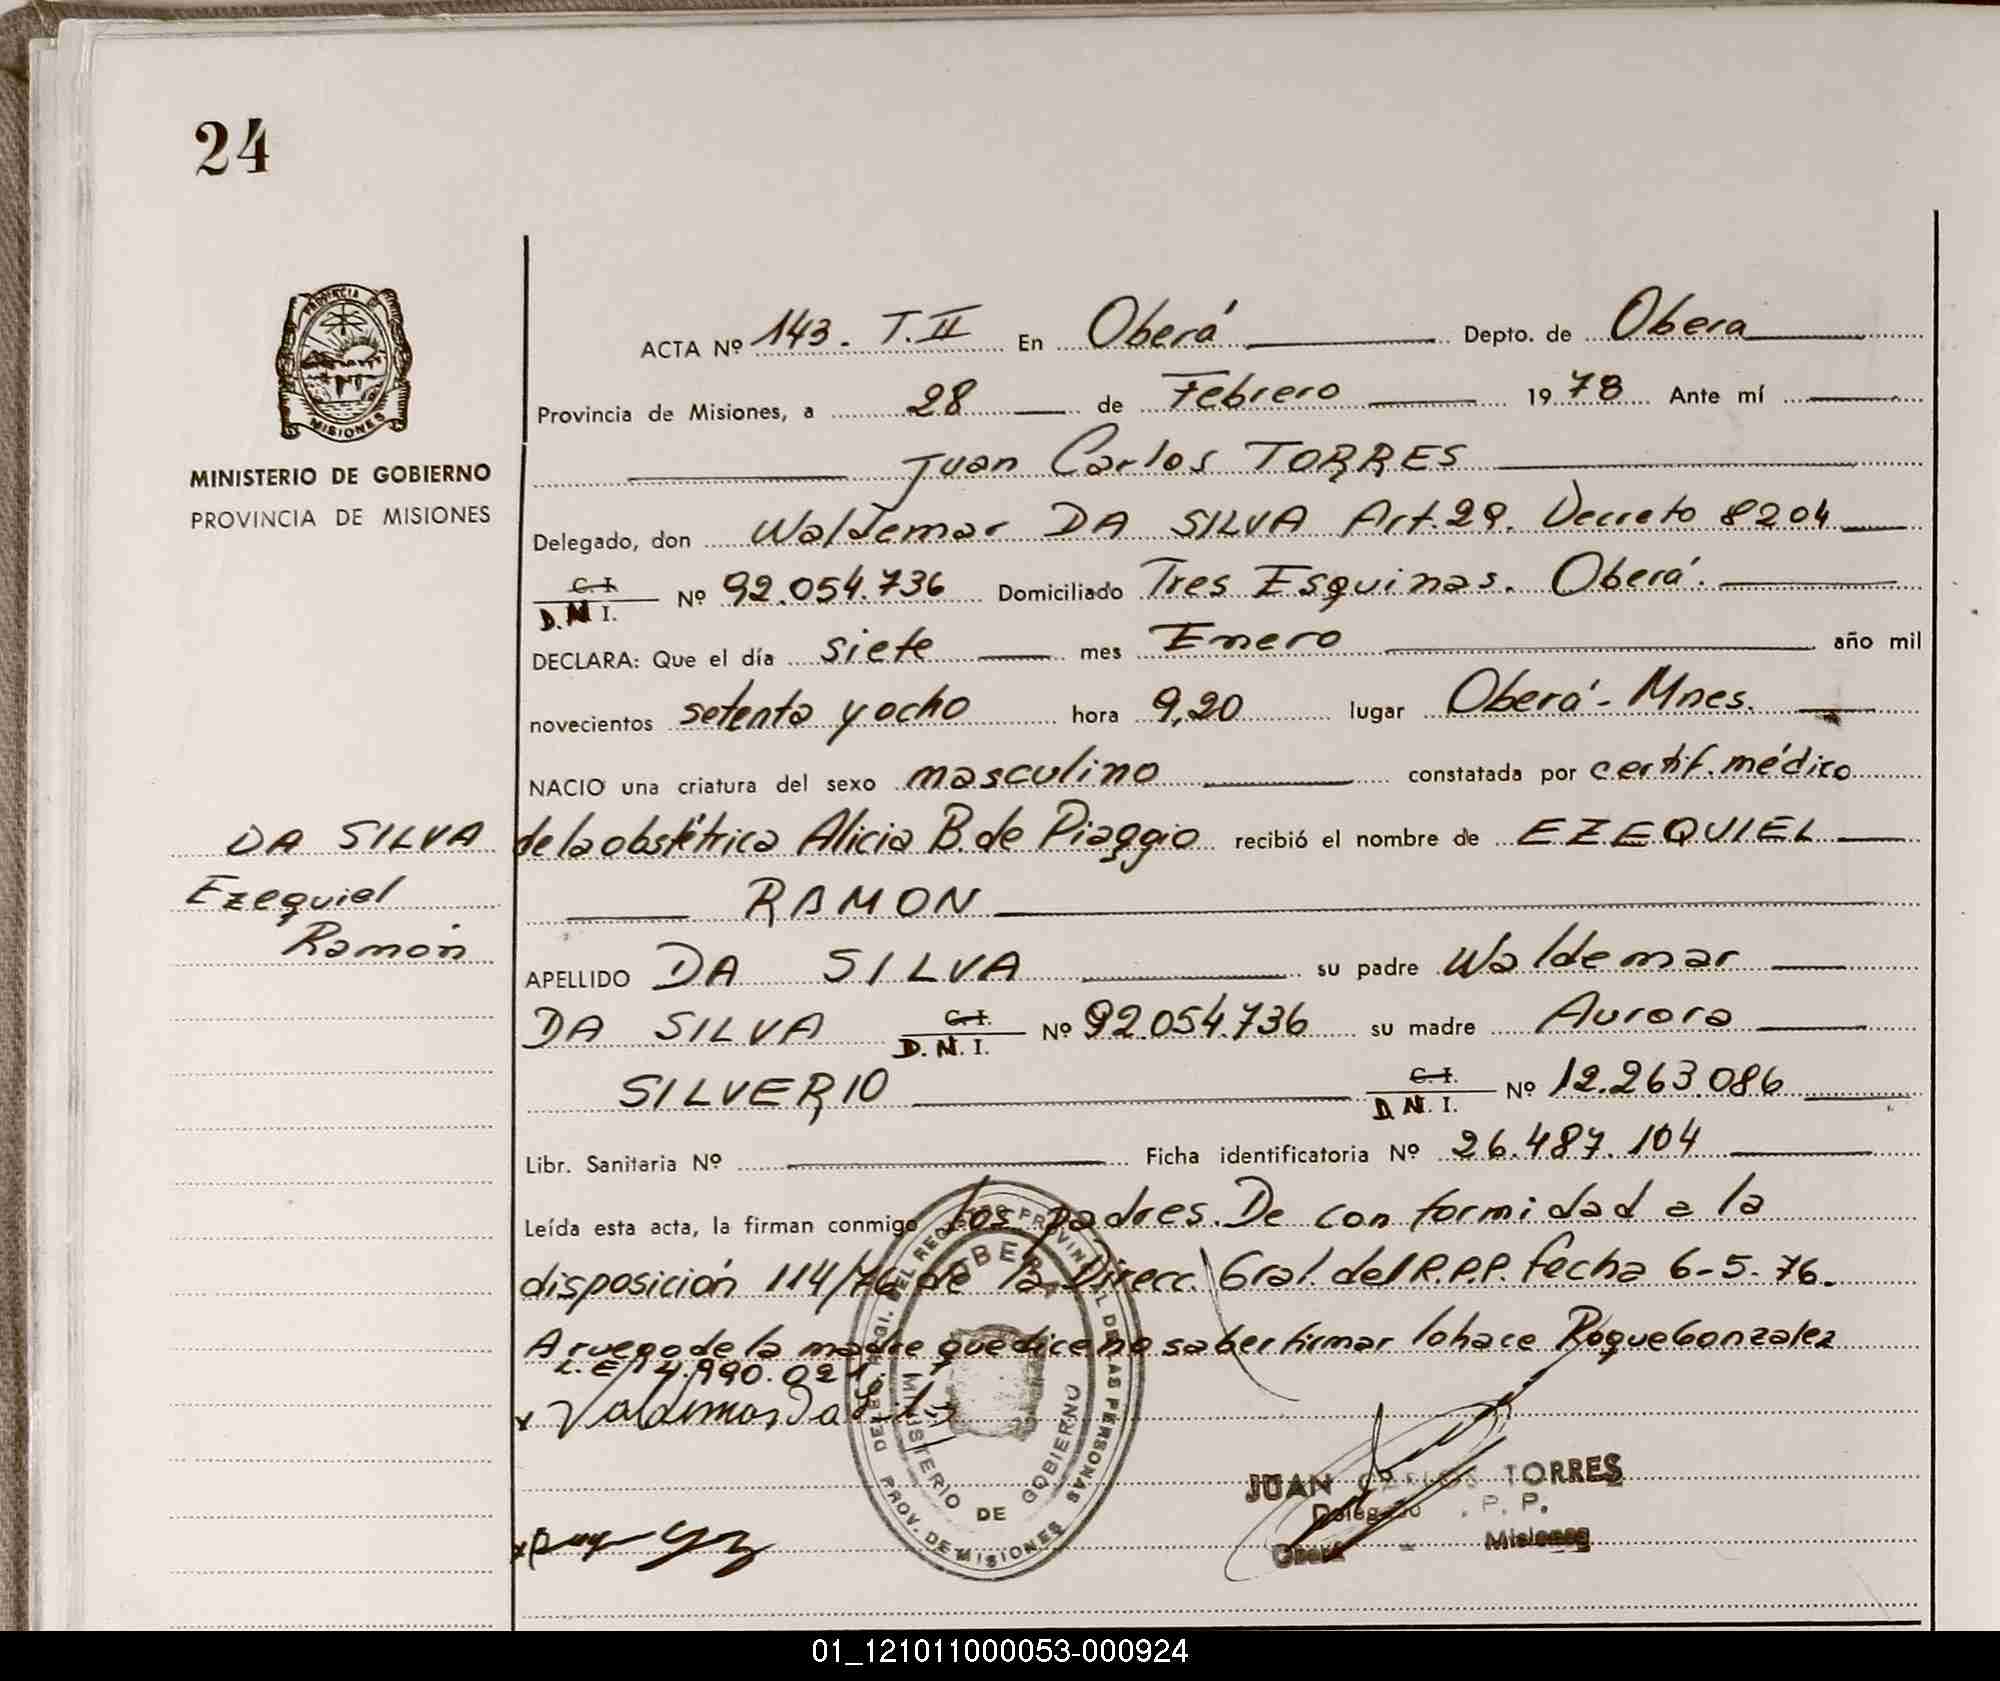 24
PROVINCIA DE MISIONES
MINISTERIO DE GOBIERNO
PROVINCIA DE MISIONES
ACTA Nº 143. T. II En Oberá Depto. de Obera
Provincia de Misiones, a 28 de Febrero 1978 Ante mí
Juan Carlos TORRES
Delegado, don Waldemar DA SILVA Art. 29. Decreto 8204
C. I. D.N I. Nº 92.054.736 Domiciliado Tres Esquinas. Oberá.
DECLARA: Que el día siete mes Enero año mil
novecientos setenta y ocho hora 9,20 lugar Oberá - Mnes.
NACIO una criatura del sexo masculino constatada por certif. médico
DA SILVA de la obstétrica Alicia B. de Piaggio recibió el nombre de EZEQUIEL
Ezequiel RAMON
Ramón
APELLIDO DA SILVA su padre Waldemar
DA SILVA C. I. D. N. I. Nº 92.054.736 su madre Aurora
SILVERIO C. I. D N. I. Nº 12.263.086
Libr. Sanitaria Nº Ficha identificatoria Nº 26.487.104
Leída esta acta, la firman conmigo los padres. De conformidad a la
disposición 114/76 de la Direcc. Gral. del R.P.P. fecha 6-5-76.
A ruego de la madre que dice no saber firmar lo hace Roque Gonzalez
L.E. 4.990.021
x Valdemar Da Silva
JUAN CARLOS TORRES
Delegado . P. P.
Oberá - Misiones
DELEG. REGI. DEL REGISTRO PROVINCIAL DE LAS PERSONAS
PROV. DE MISIONES
OBERA
MINISTERIO DE GOBIERNO
01_121011000053-000924